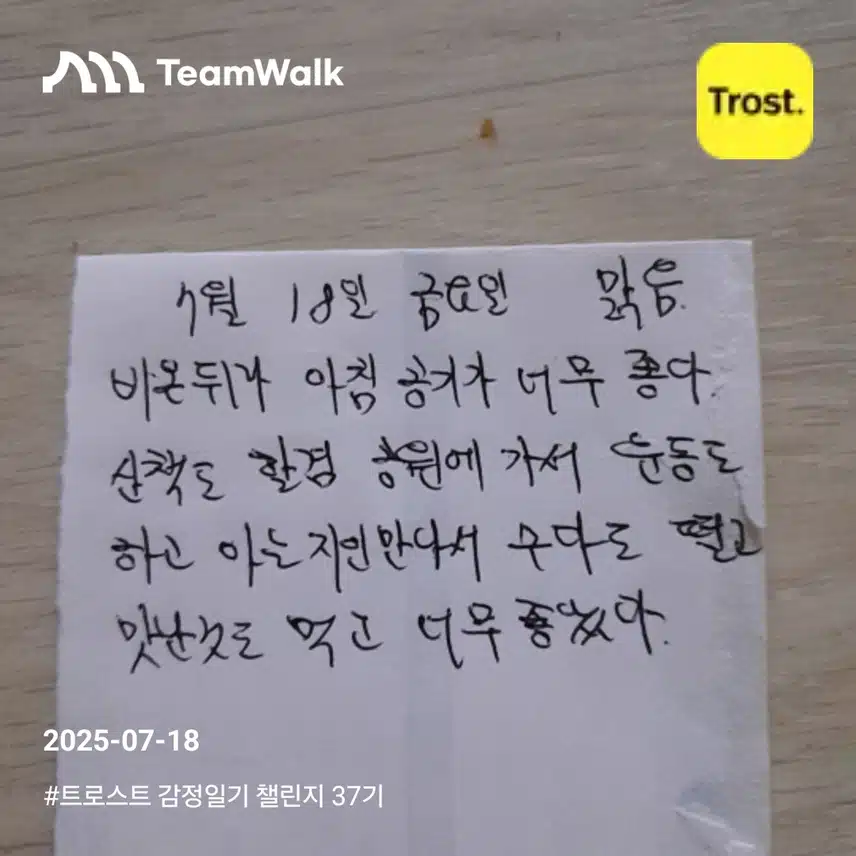 TeamWalk
Trost.
7월 18일 금요일 맑음.
비온뒤라 아침 공기가 너무 좋다.
산책도 할겸 공원에 가서 운동도
하고 아는 지인만나서 수다도 떨고
맛난것도 먹고 너무 좋았다.
2025-07-18
#트로스트 감정일기 챌린지 37기